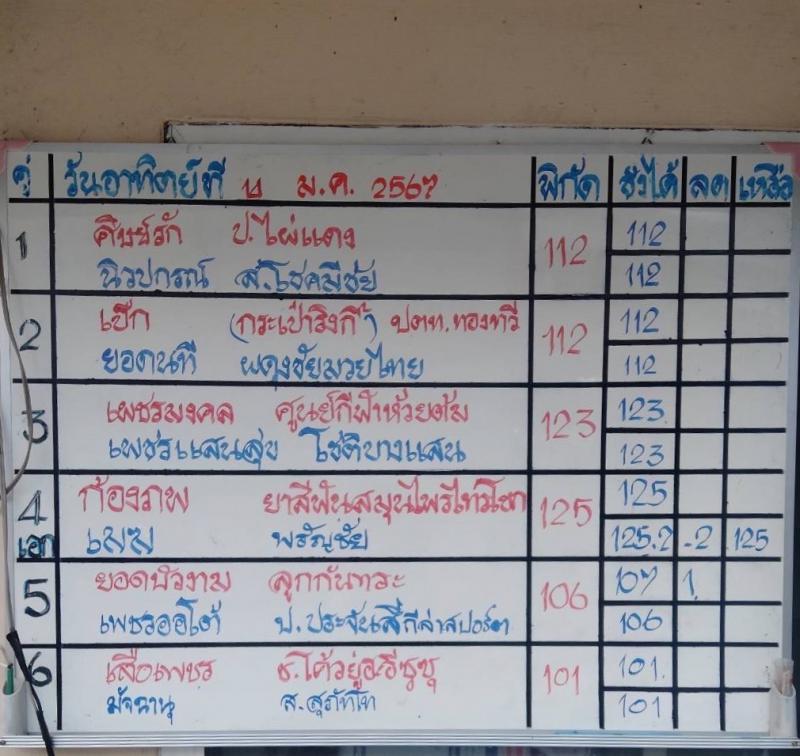 คู่ วันอาทิตย์ที่ ม.ค. 2567 พิกัด ชั่งได้ ลด เหลือ
1 ศิษย์รัก ป.ไผ่แดง 112 112
นิวปกรณ์ ส.โชคมีชัย 112
2 เบิ๊ก (กระเป๋าริงกี้) ปตท.ทองทวี 112 112
ยอดนที ผดุงชัยมวยไทย 112
3 เพชรมงคล ศูนย์กีฬาห้วยต้ม 123 123
เพชรแสนสุข โชติบางแสน 123
4 ก้องภพ ยาสีฟันสมุนไพรไทวโชก 125 125
เอก เมฆ พรัญชัย 125.2 -2 125
5 ยอดบัวงาม ลูกกันทระ 106 107 1
เพชรออโต้ ป.ประจันสี่กีล่าสปอร์ต 106
6 เสือเพชร 101 101
มัจฉานุ ส.สุภัทโท 101